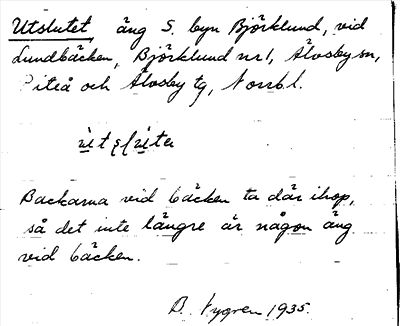 Utslutet, äng S. byn Björklund, vid
Lundbäcken, Björklund nr 1, Älvsby sn,
Piteå och Älvsby tg, Norrb. l.
Backarna vid bäcken ta där ihop,
så det inte längre är någon äng
vid bäcken.
B. Nygren 1935.